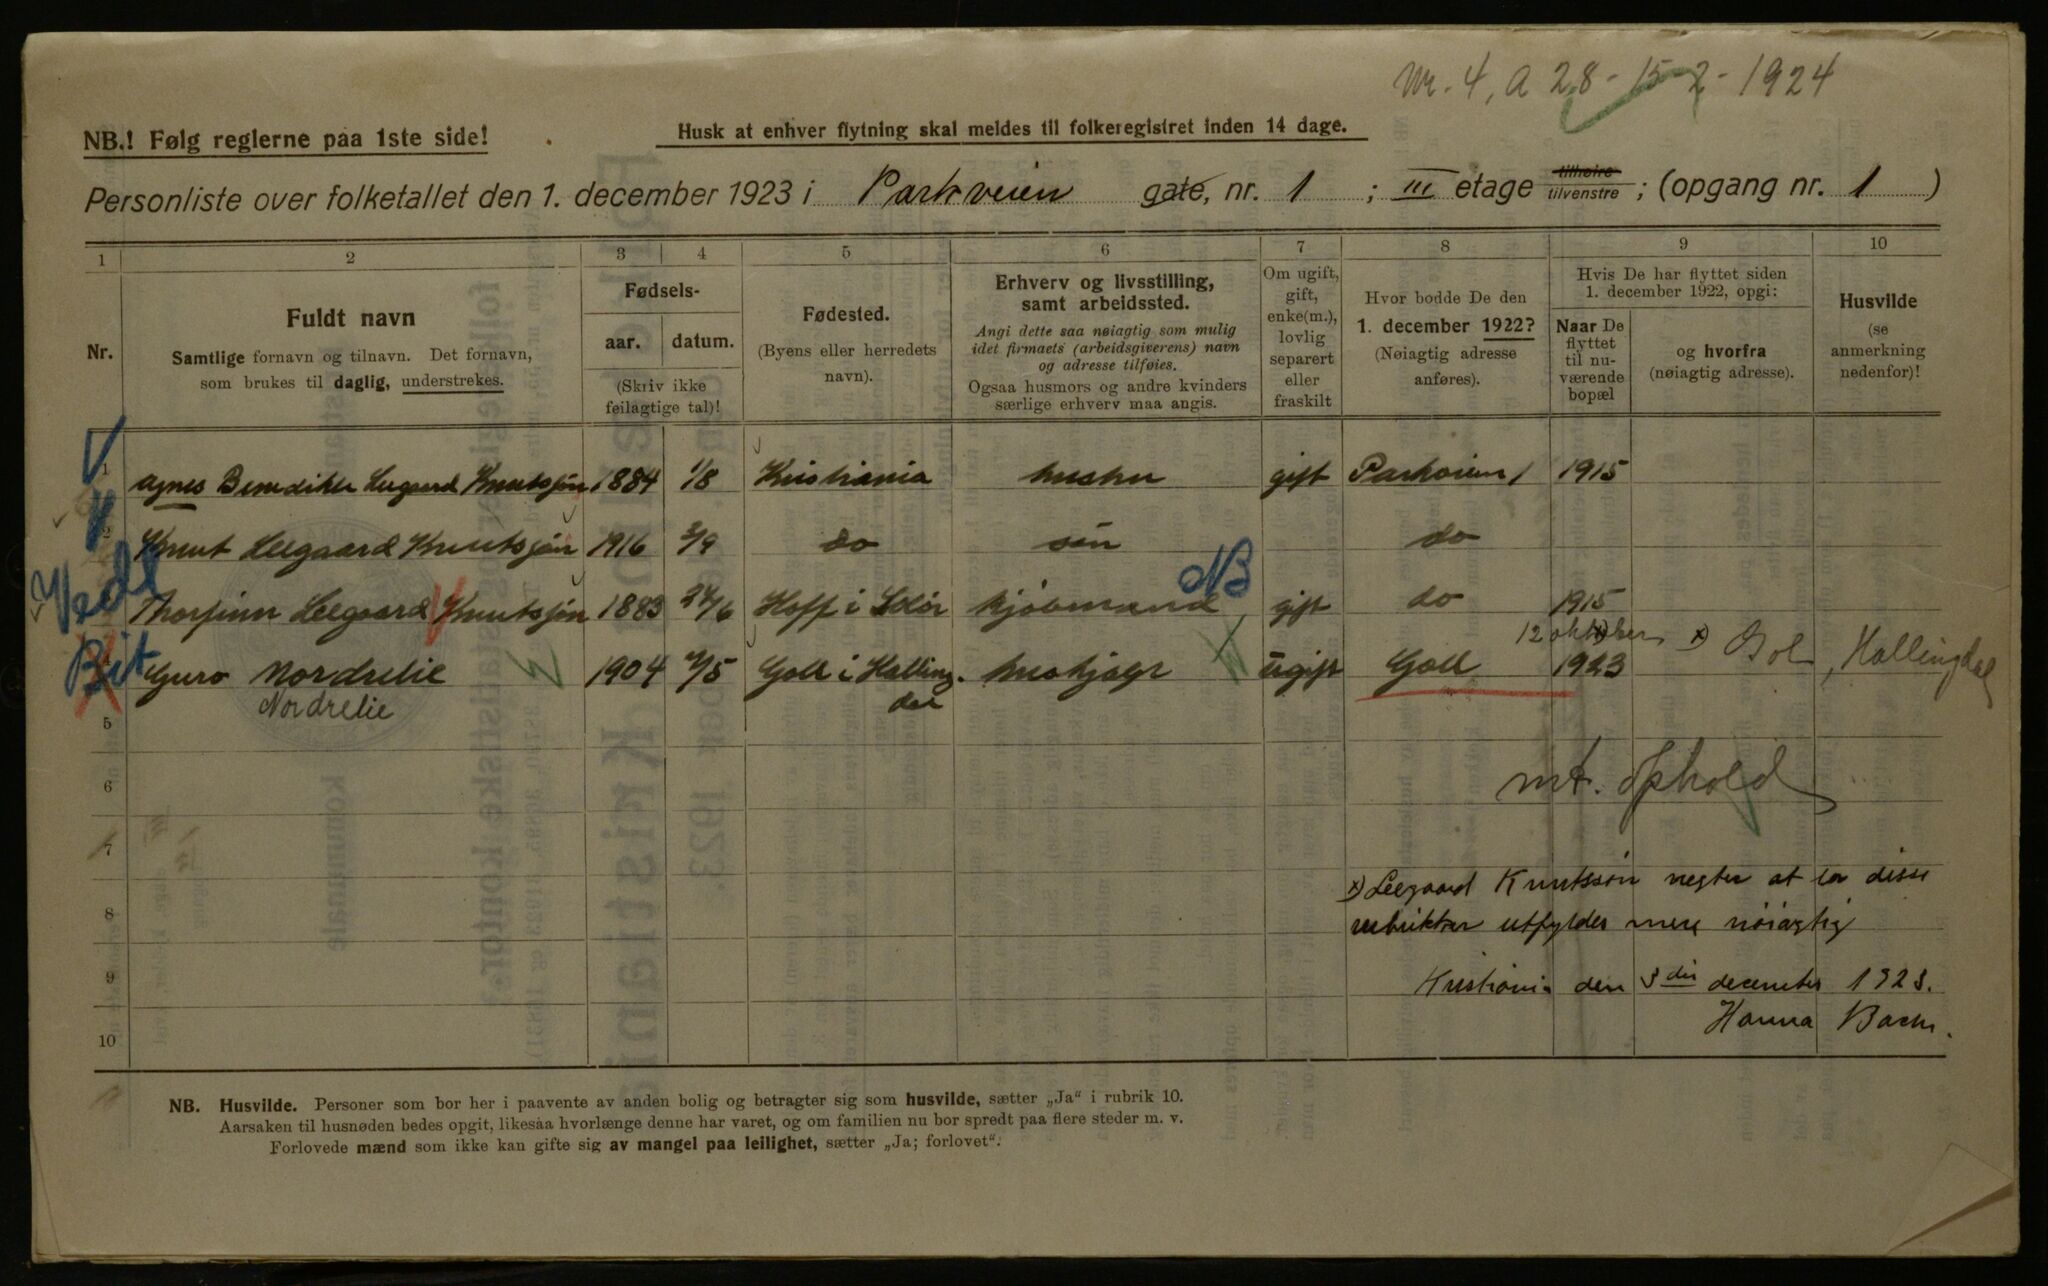 Nr. 4, A 28 - 15 - 2 - 1924
NB.! Følg reglerne paa 1ste side!
Husk at enhver flytning skal meldes til folkeregistret inden 14 dage.
Personliste over folketallet den 1. december 1923 i Parkveien gate, nr. 1 ; III etage tilhøire tilvenstre ; (opgang nr. 1 )
1 2 3 4 5 6 7 8 9 10
Nr.
Fuldt navn
Samtlige fornavn og tilnavn. Det fornavn,
som brukes til daglig, understrekes.
Fødsels-
aar. datum.
(Skriv ikke
feilagtige tal)!
Fødested.
(Byens eller herredets
navn).
Erhverv og livsstilling,
samt arbeidssted.
Angi dette saa nøiagtig som mulig
idet firmaets (arbeidsgiverens) navn
og adresse tilføies.
Ogsaa husmors og andre kvinders
særlige erhverv maa angis.
Om ugift,
gift,
enke(m.),
lovlig
separert
eller
fraskilt
Hvor bodde De den
1. december 1922?
(Nøiagtig adresse
anføres).
Hvis De har flyttet siden
1. december 1922, opgi:
Naar De
flyttet
til nu-
værende
bopæl
og hvorfra
(nøiagtig adresse).
Husvilde
(se
anmerkning
nedenfor)!
1 Agnes Benedikte Leegaard Knutsjøn 1884 1/8 Kristiania hustru gift Parkveien 1 1915
2 Knut Leegaard Knutsjøn 1916 3/9 do søn do
Vedl
Thorfinn Leegaard Knutsjøn 1883 24/6 Hoff i Solør kjøbmand NB gift do 1915
12 oktober
Bit Guro Nordrelie 1904 7/5 Goll i Halling. hushjælp ugift Goll 1923 x) Gol, Hallingdal
Nordrelie dal
5
6 mt. Ophold
7
x) Leegaard Knutssøn negter at la disse
8 rubrikker utfyldes mere nøiagtig
9 Kristiania den 3die december 1923.
10 Hanna Bache.
NB. Husvilde. Personer som bor her i paavente av anden bolig og betragter sig som husvilde, sætter „Ja“ i rubrik 10.
Aarsaken til husnøden bedes opgit, likesaa hvorlænge denne har varet, og om familien nu bor spredt paa flere steder m. v.
Forlovede mænd som ikke kan gifte sig av mangel paa leilighet, sætter „Ja; forlovet“.